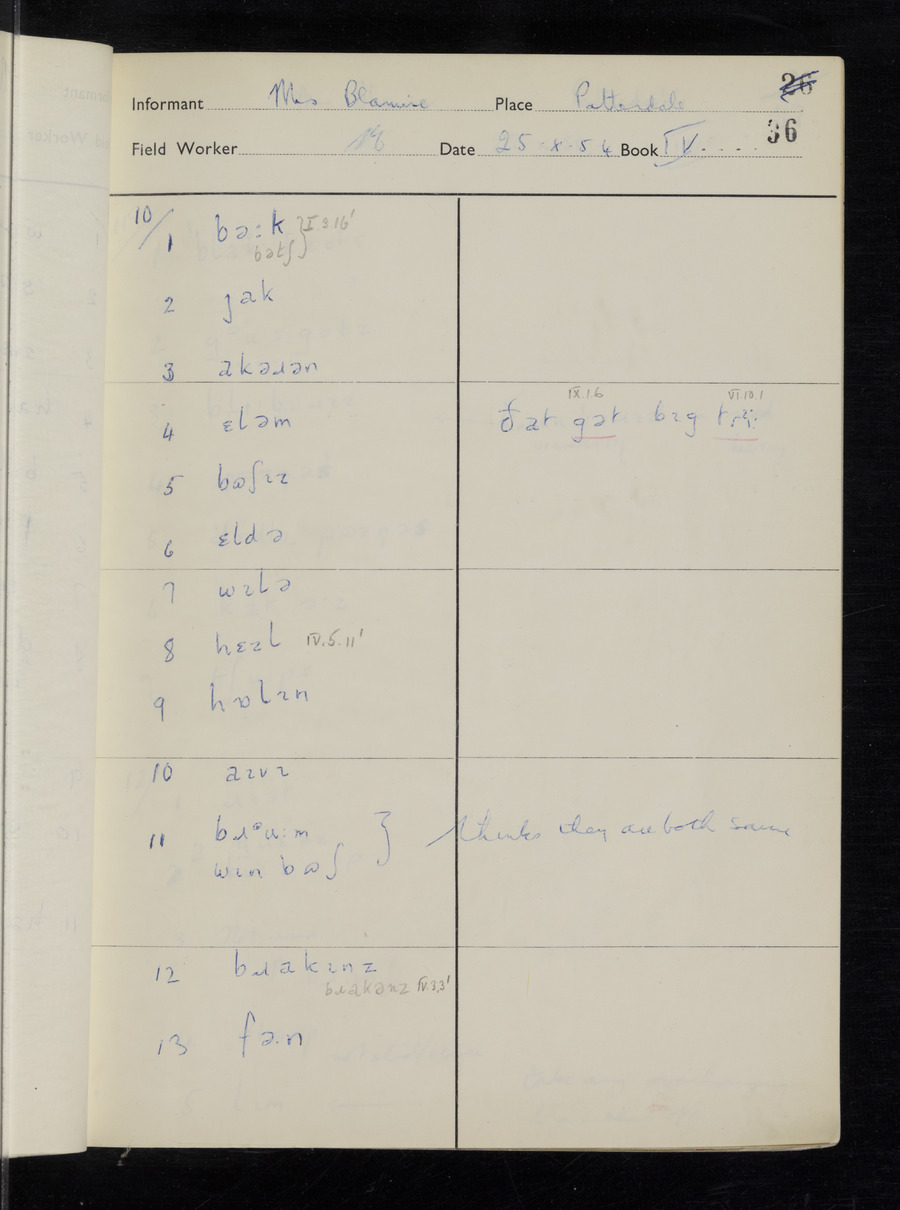 Informant Mrs Blamire Place Patterdale 26
Field Worker Date 25 · x · 54 Book IV 36
10/1 bəːk } I.3.16'
bətʃ
2 jak
3 akəɹən
4 ɛləm
ðat gət bɪg
IX.16
VI.10.1
5 bʊʃɪz
6 ɛldə
7 wɪlə
8 hɛzl IV.5.11'
9 hɒlɪn
10 aɪvɪ
11 bɹᵊuːm }
wɪn bʊʃ
thinks they are both same
12 bɹakɪnz
bɹakənz IV.3.3'
13